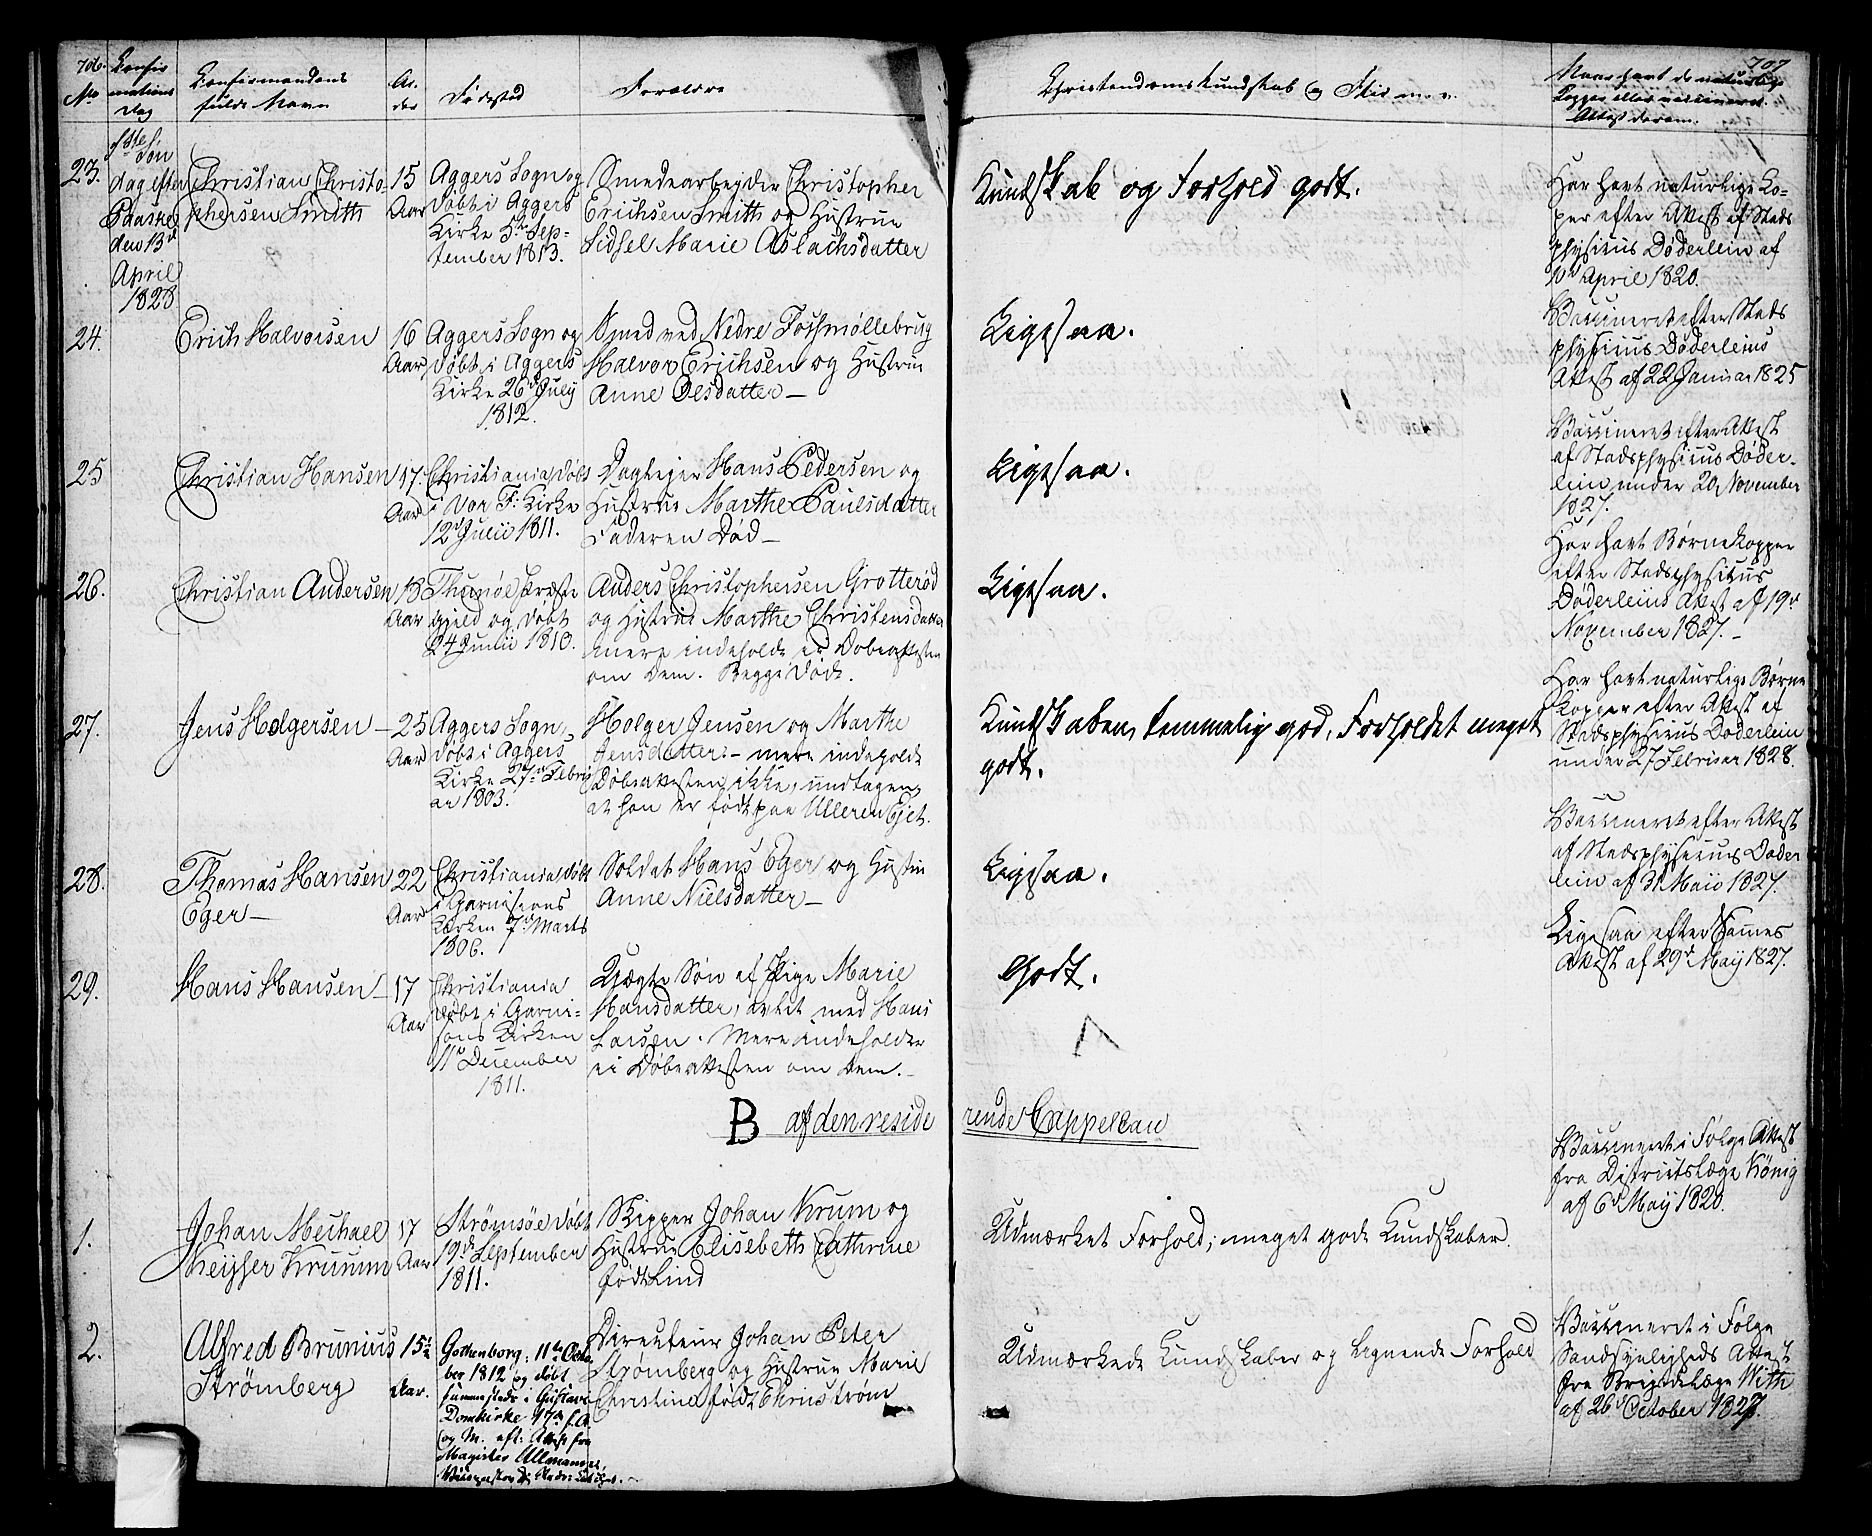 706.
No
Confir
mations
Dag
Confirmandens
fulde Navn
Al-
der
Fødested
Forældre
Christendomskundskab og
707
Naar havt de naturlige
Kopper eller vaccineret.
Attest derom.
23.
1ste Søn
dag efter
Paaske
den 13de
April
1828
Christian Christo-
phersen Smith
15
Aar
Aggers Sogn og
døbt i Aggers
Kirke 5te Sep-
tember 1813.
Smedearbejder Christopher
Erichsen Smith og Hustrue
Sidsel Marie Aslachsdatter
Kundskab og Forhold godt.
Har havt naturlige Ko-
per efter Attest af Stads
physicus Døderlein af
10de April 1820.
24.
Erich Halvorsen
16
Aar
Aggers Sogn og
døbt i Aggers
Kirke 26de July
1812.
Smed ved Nedre Fossmøllebrug
Halvor Erichsen og Hustrue
Anne Olesdatter —
Ligesaa.
Vaccineret efter Stads
physicus Døderleins
Attest af 22 Januar 1825
25
Christian Hansen
17
Aar
Christiania døbt
i Vor F: Kirke
12de Julii 1811.
Daglejer Hans Pedersen og
Hustrue Marthe Paulsdatter
Faderen Død —
Ligesaa.
Vaccineret efter Attest
af Stadsphysicus Døder-
lein under 20 November
1827.
26.
Christian Andersen
18
Aar
Thunøe Præste
gjeld og døbt
24 Junii 1810.
Anders Christophersen Grotterød
og Hustrue Marthe Christensdatter
mere indeholder ei Døbeattesten
om Dem. Begge døde.
Ligesaa.
Har havt Børnekopper
efter Stadsphysicus
Døderleins Attest af 19de
November 1827. —
27.
Jens Holgersen —
25
Aar
Aggers Sogn,
døbt i Aggers
Kirke 27de Febru
ar 1803.
Holger Jensen og Marthe
Jensdatter. — mere indeholdt
Døbeattesten ikke, undtagen,
at han er født paa Ulleren Ejet.
Kundskaben temmelig god, Forholdet meget
godt.
Har havt naturlige Børne
Kopper efter Attest af
Stadsphysicus Døderlein
under 27 Februar 1828.
28.
Thomas Hansen
Eger —
22
Aar
Christiania døbt
i Garnisons
Kirken 7de Marts
1806.
Soldat Hans Eger og Hustru
Anne Nielsdatter —
Ligesaa.
Vaccineret efter Attest
af Stadsphysicus Døder
lein af 31 Maii 1827.
29.
Hans Hansen —
17
Aar
Christiania
døbt i Garni-
sons Kirken
11te December
1811.
Uægte Søn af Pige Marie
Hansdatter, avlet med Hans
Larsen. Mere indeholder
ei Døbeattesten om Dem. —
Godt.
Ligesaa efter Sammes
Attest af 29de May 1827.
B af den reside
rende Cappellan
1.
Johan Mechael
Keyser Krumm
17
Aar
Strømsøe døbt
19de September
1811.
Skipper Johan Krum og
Hustrue Elisebeth Cathrine
født Lind
Udmærket Forhold; meget gode Kundskaber.
Vaccineret i Følge Attest
fra Districtslæge König
af 6de May 1820.
2.
Alfred Brunius
Strömberg
15½
Aar.
Gothenborg: 11te Octo
ber 1812 og døbt
sammesteds i Gustavi
Domkirke 17de f. A.
og M. eft: Attest fra
Magister Ullmann,
Directeur Johan Peter
Strømberg og Hustrue Marie
Christina född Ehrnström
Udmærkede Kundskaber og lignende Forhold
Vaccineret i Følge
Sandsynligheds Attest
fra Brigadelæge With
af 26 October 1827.